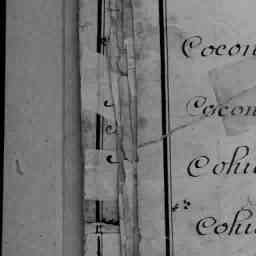 Cocon
Cocon
Cohu
Cohu